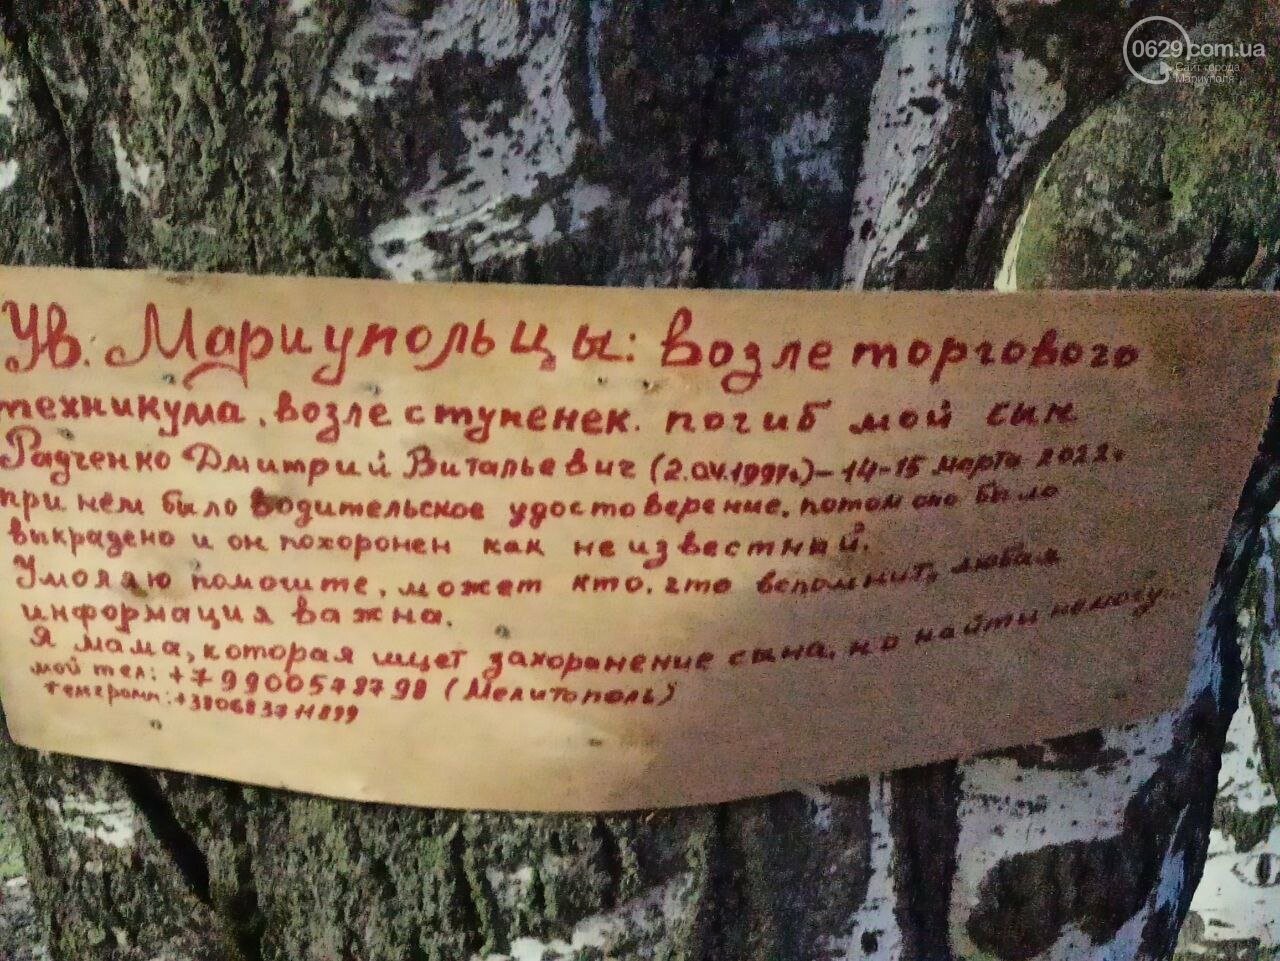 0629.com.ua
Сайт города
Мариуполя
Ув. Мариупольцы: возле торгового
техникума, возле ступенек. погиб мой сын
Радченко Дмитрий Витальевич (2.04.1991г.)-14-15 марта 2022г.
при нём было водительское удостоверение, потом оно было
выкрадено и он похоронен как неизвестный.
Умоляю помогите, может кто, что вспомнит, любая
информация важна.
Я мама, которая ищет захоронение сына, но найти не могу...
мой тел: +79900578798 (Мелитополь)
телеграмм: +380683711899